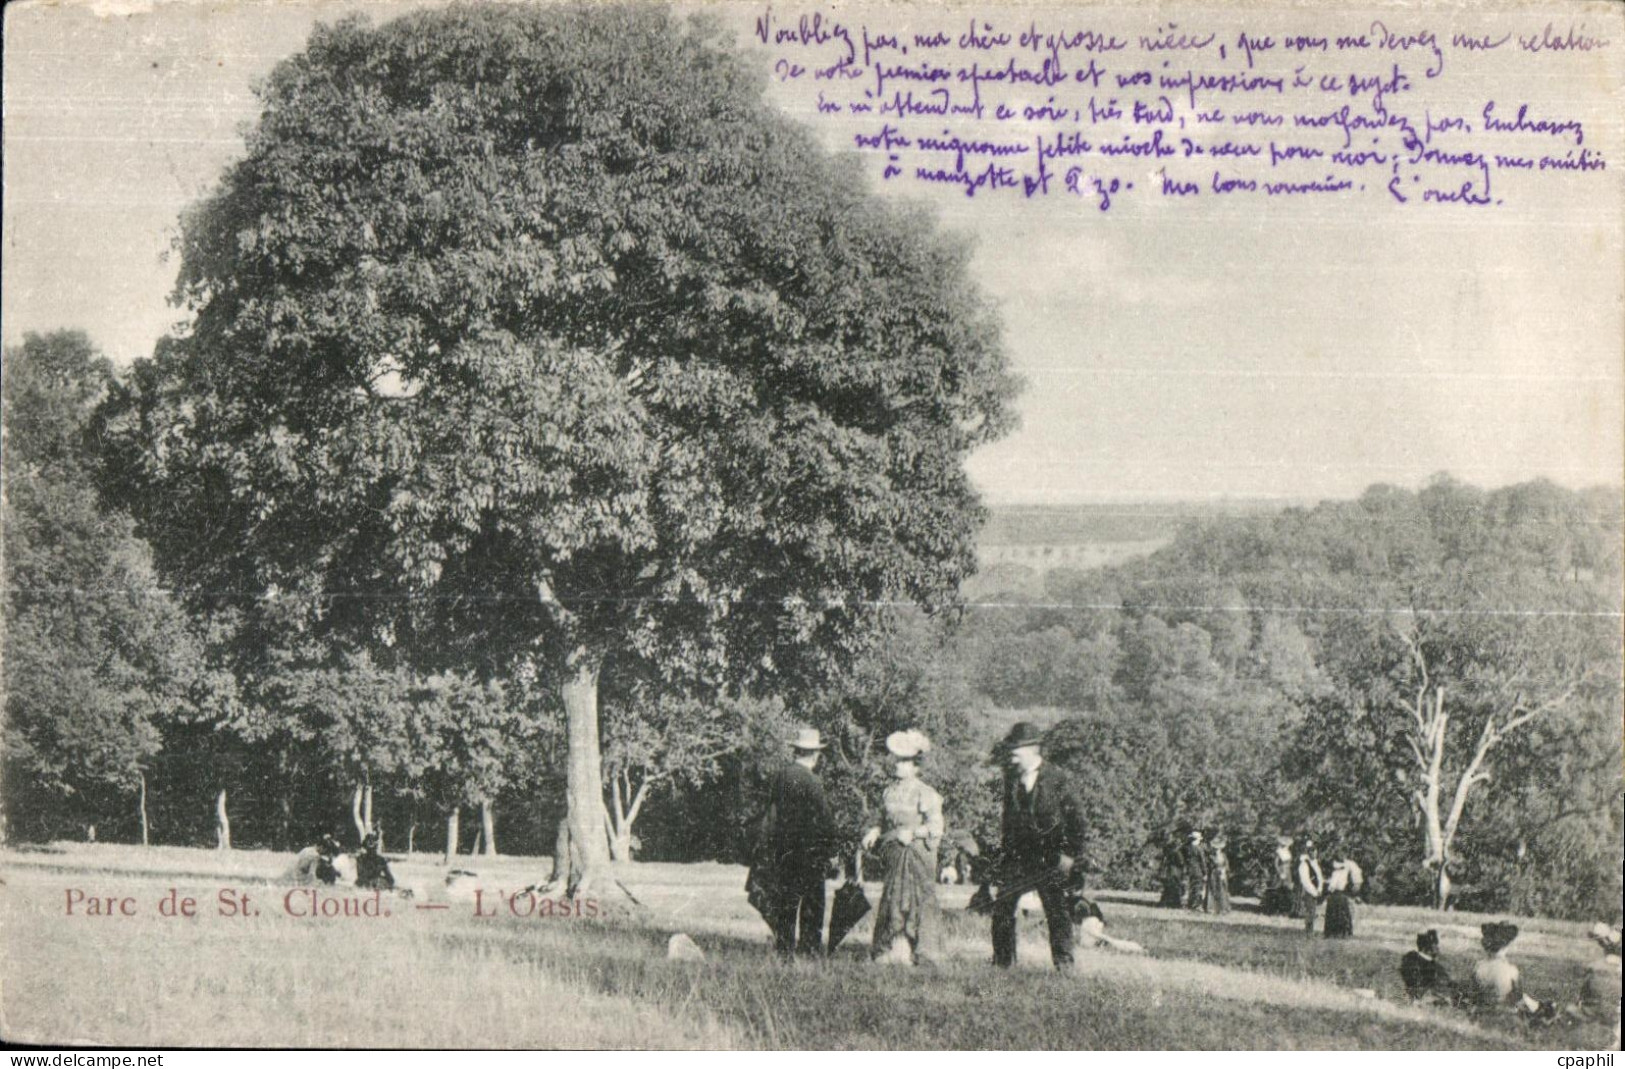 N'oubliez pas, ma chère et grosse nièce, que vous me devez une relation
de votre premier spectacle et vos impressions à ce sujet.
En m'attendant ce soir, très tard, ne vous morfondez pas. Embrassez
notre mignonne petite mioche de sœur pour moi; Donnez mes amitiés
à manzotte et Zizo. Mes bons souvenirs. L'oncle.
Parc de St. Cloud. — L'Oasis.
delcampe.net
cpaphil